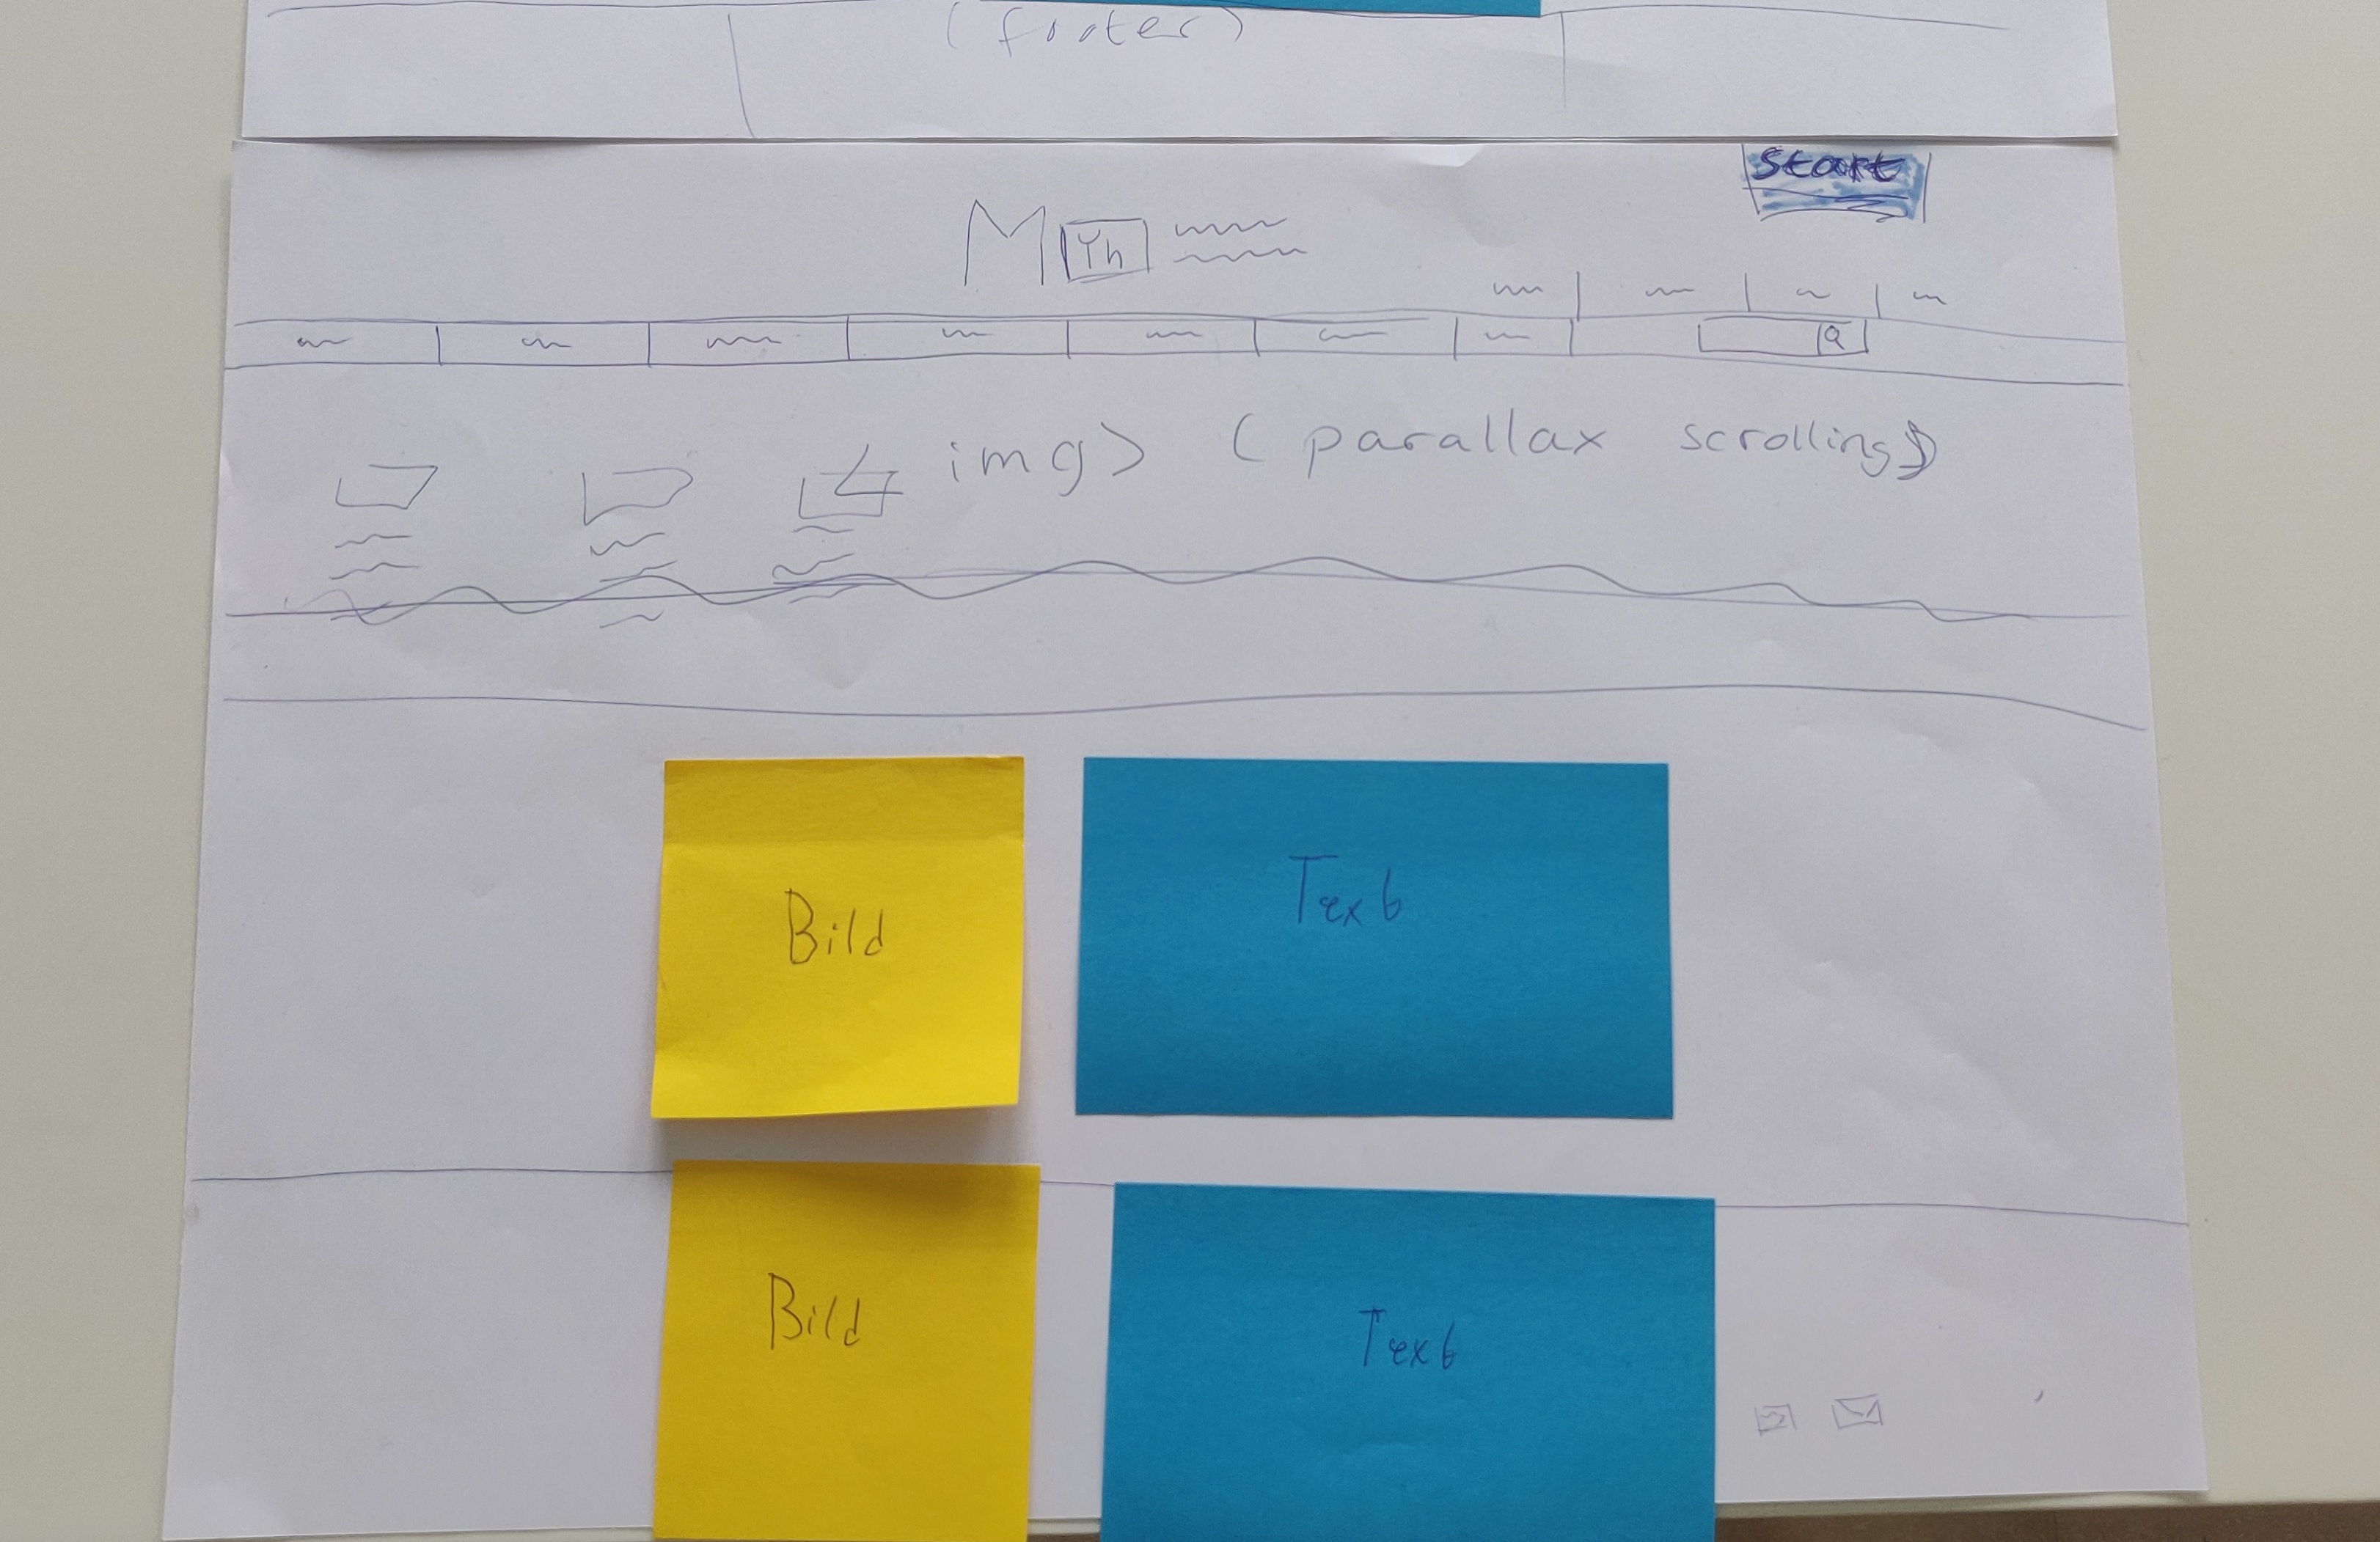 (footer)
start
M Yh
img> (parallax scrolling)
Bild
Text
Bild
Text